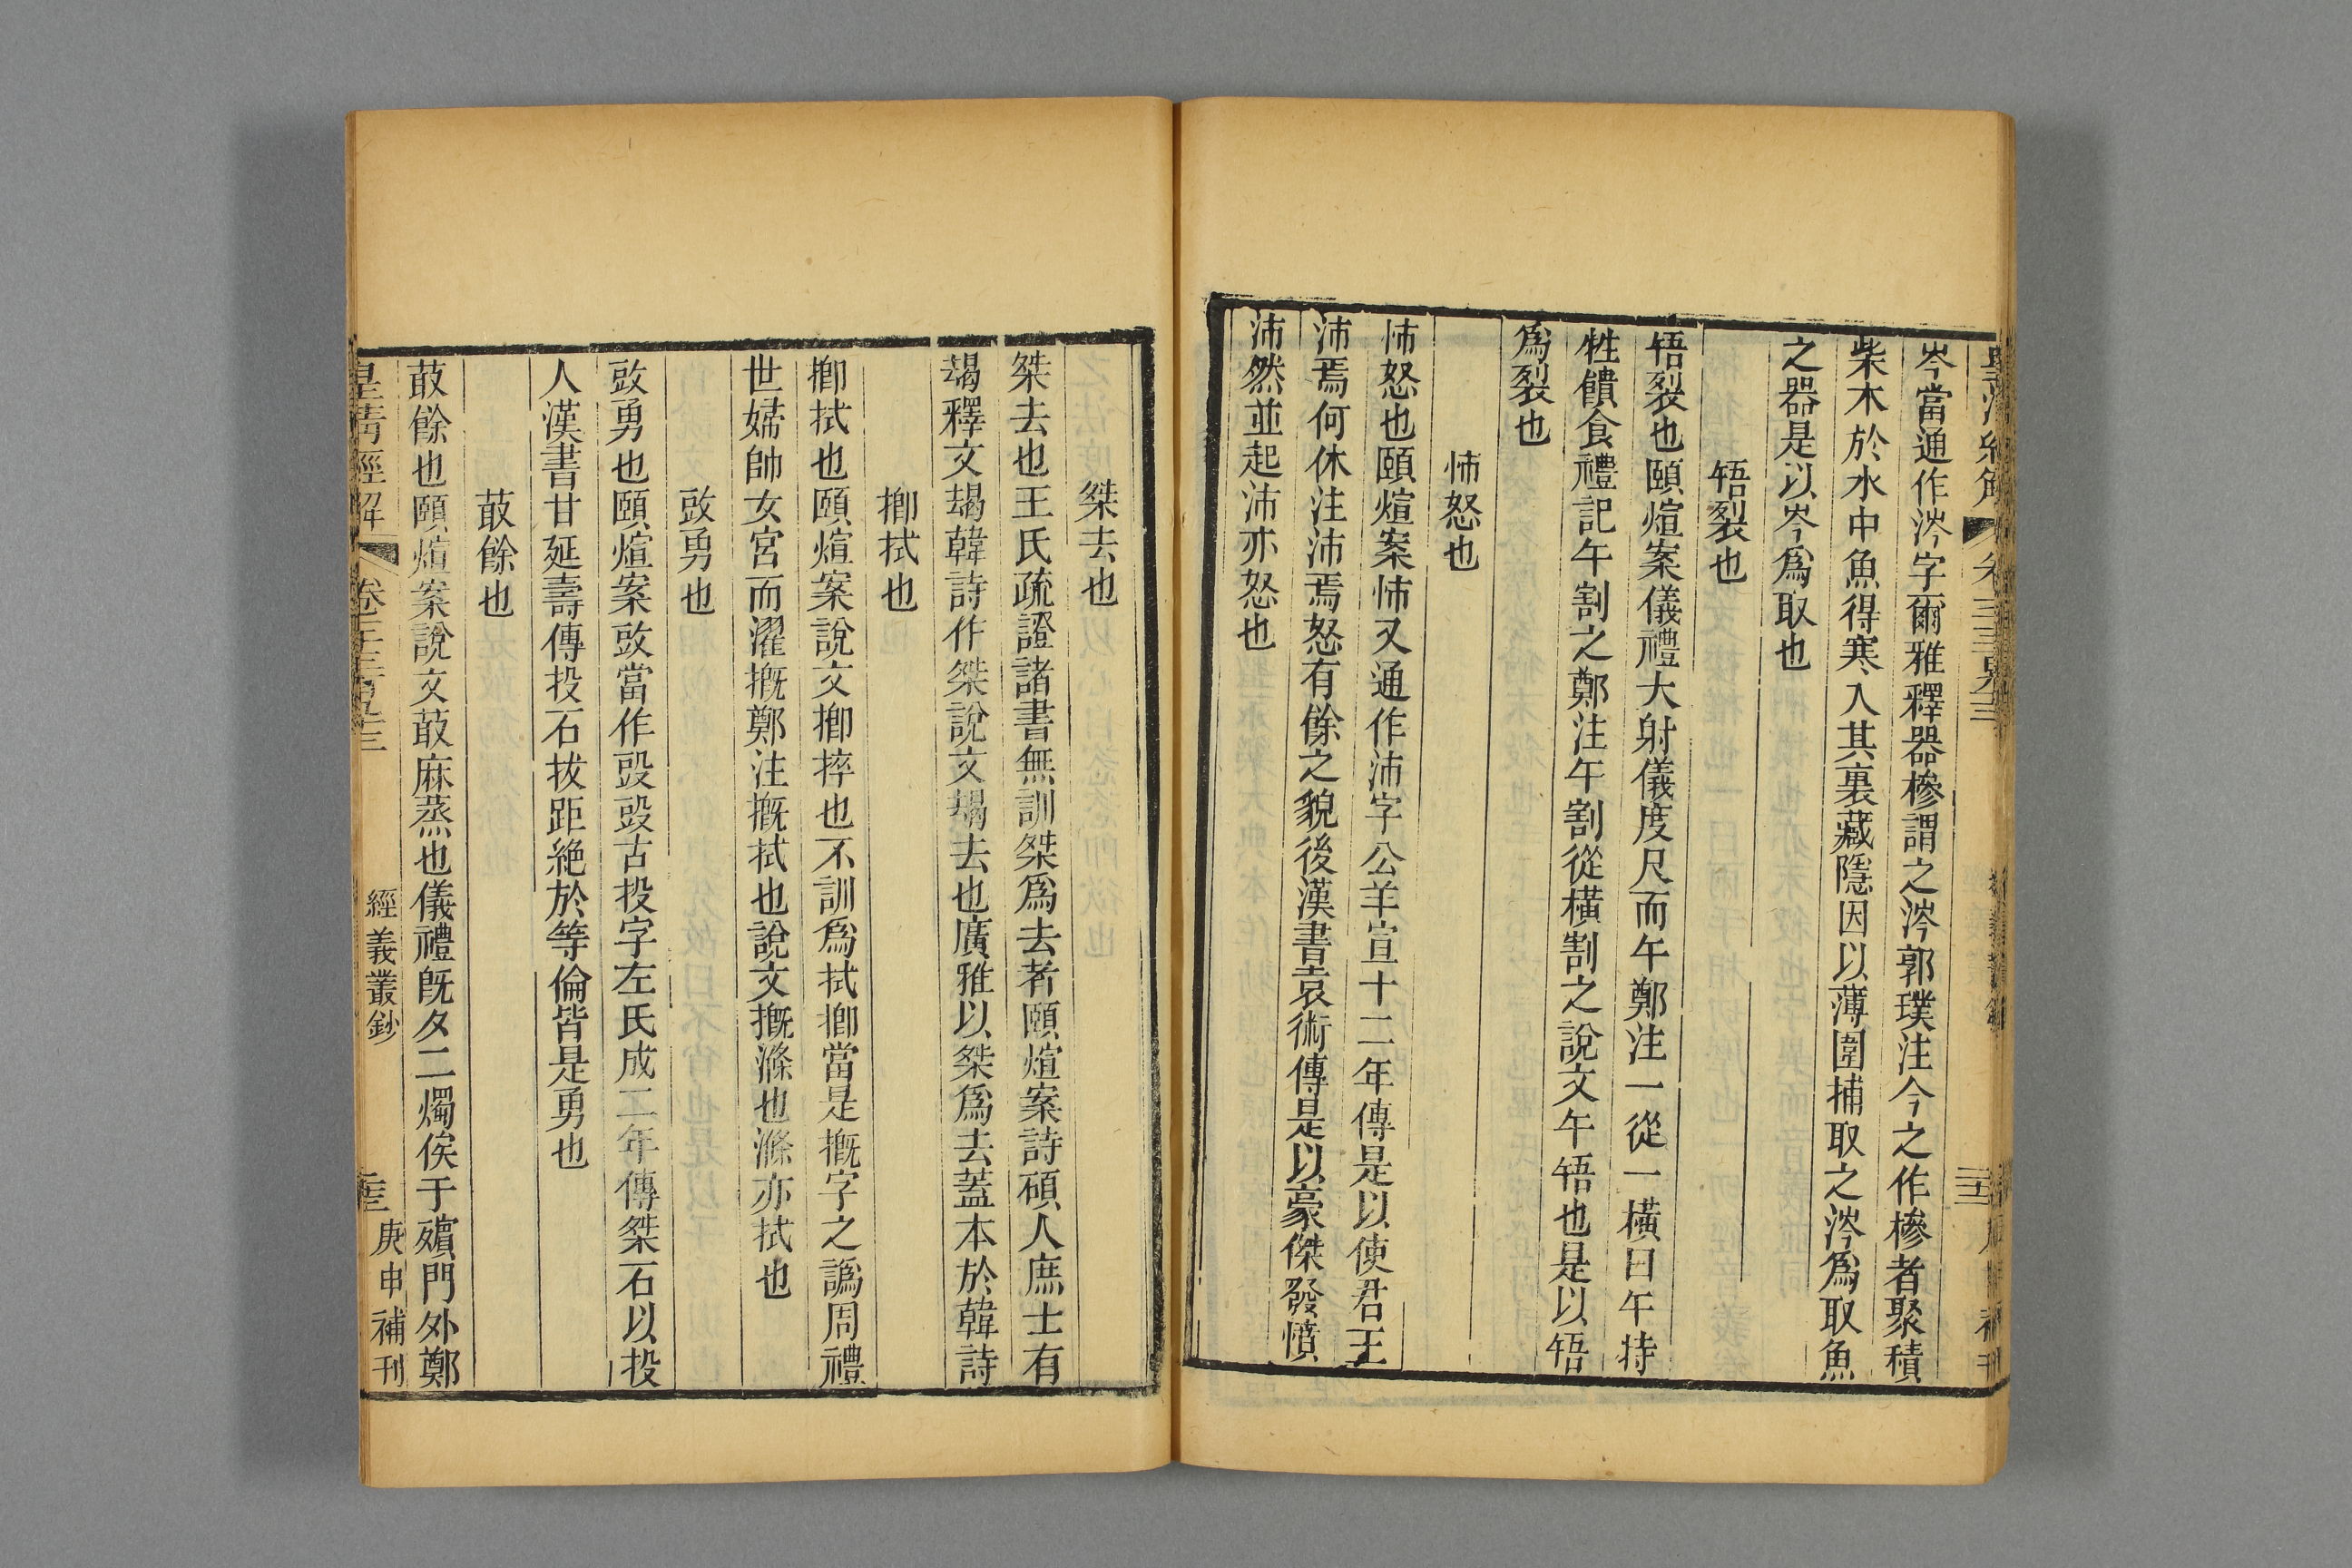 岑當通作涔字爾雅釋器槮謂之涔郭璞注今之作槮者聚積
柴木於水中魚得寒入其裏藏隱因以薄圍捕取之涔爲取魚
之器是以岑爲取也
啎裂也
啎裂也頤煊案儀禮大射儀度尺而午鄭注一從一橫曰午特
牲饋食禮記午割之鄭注午割從橫割之說文午啎也是以啎
爲裂也
怖怒也
怖怒也頤煊案怖又通作沛字公羊宣十二年傳是以使君王
沛焉何休注沛焉怒有餘之貌後漢書袁術傳是以豪傑發憤
沛然並起沛亦怒也
桀去也
桀去也王氏疏證諸書無訓桀爲去者頤煊案詩碩人庶士有
朅釋文朅韓詩作桀說文朅去也廣雅以桀爲去蓋本於韓詩
揤拭也
揤拭也頤煊案說文揤捽也不訓爲拭揤當是摡字之譌周禮
世婦帥女宮而濯摡鄭注摡拭也說文摡滌也滌亦拭也
敪勇也
敪勇也頤煊案敪當作㱾㱾古投字左氏成二年傳桀石以投
人漢書甘延壽傳投石拔距絶於等倫皆是勇也
菆餘也
菆餘也頤煊案說文菆麻蒸也儀禮旣夕二燭俟于殯門外鄭
皇清經解 經義叢鈔 庚申補刊